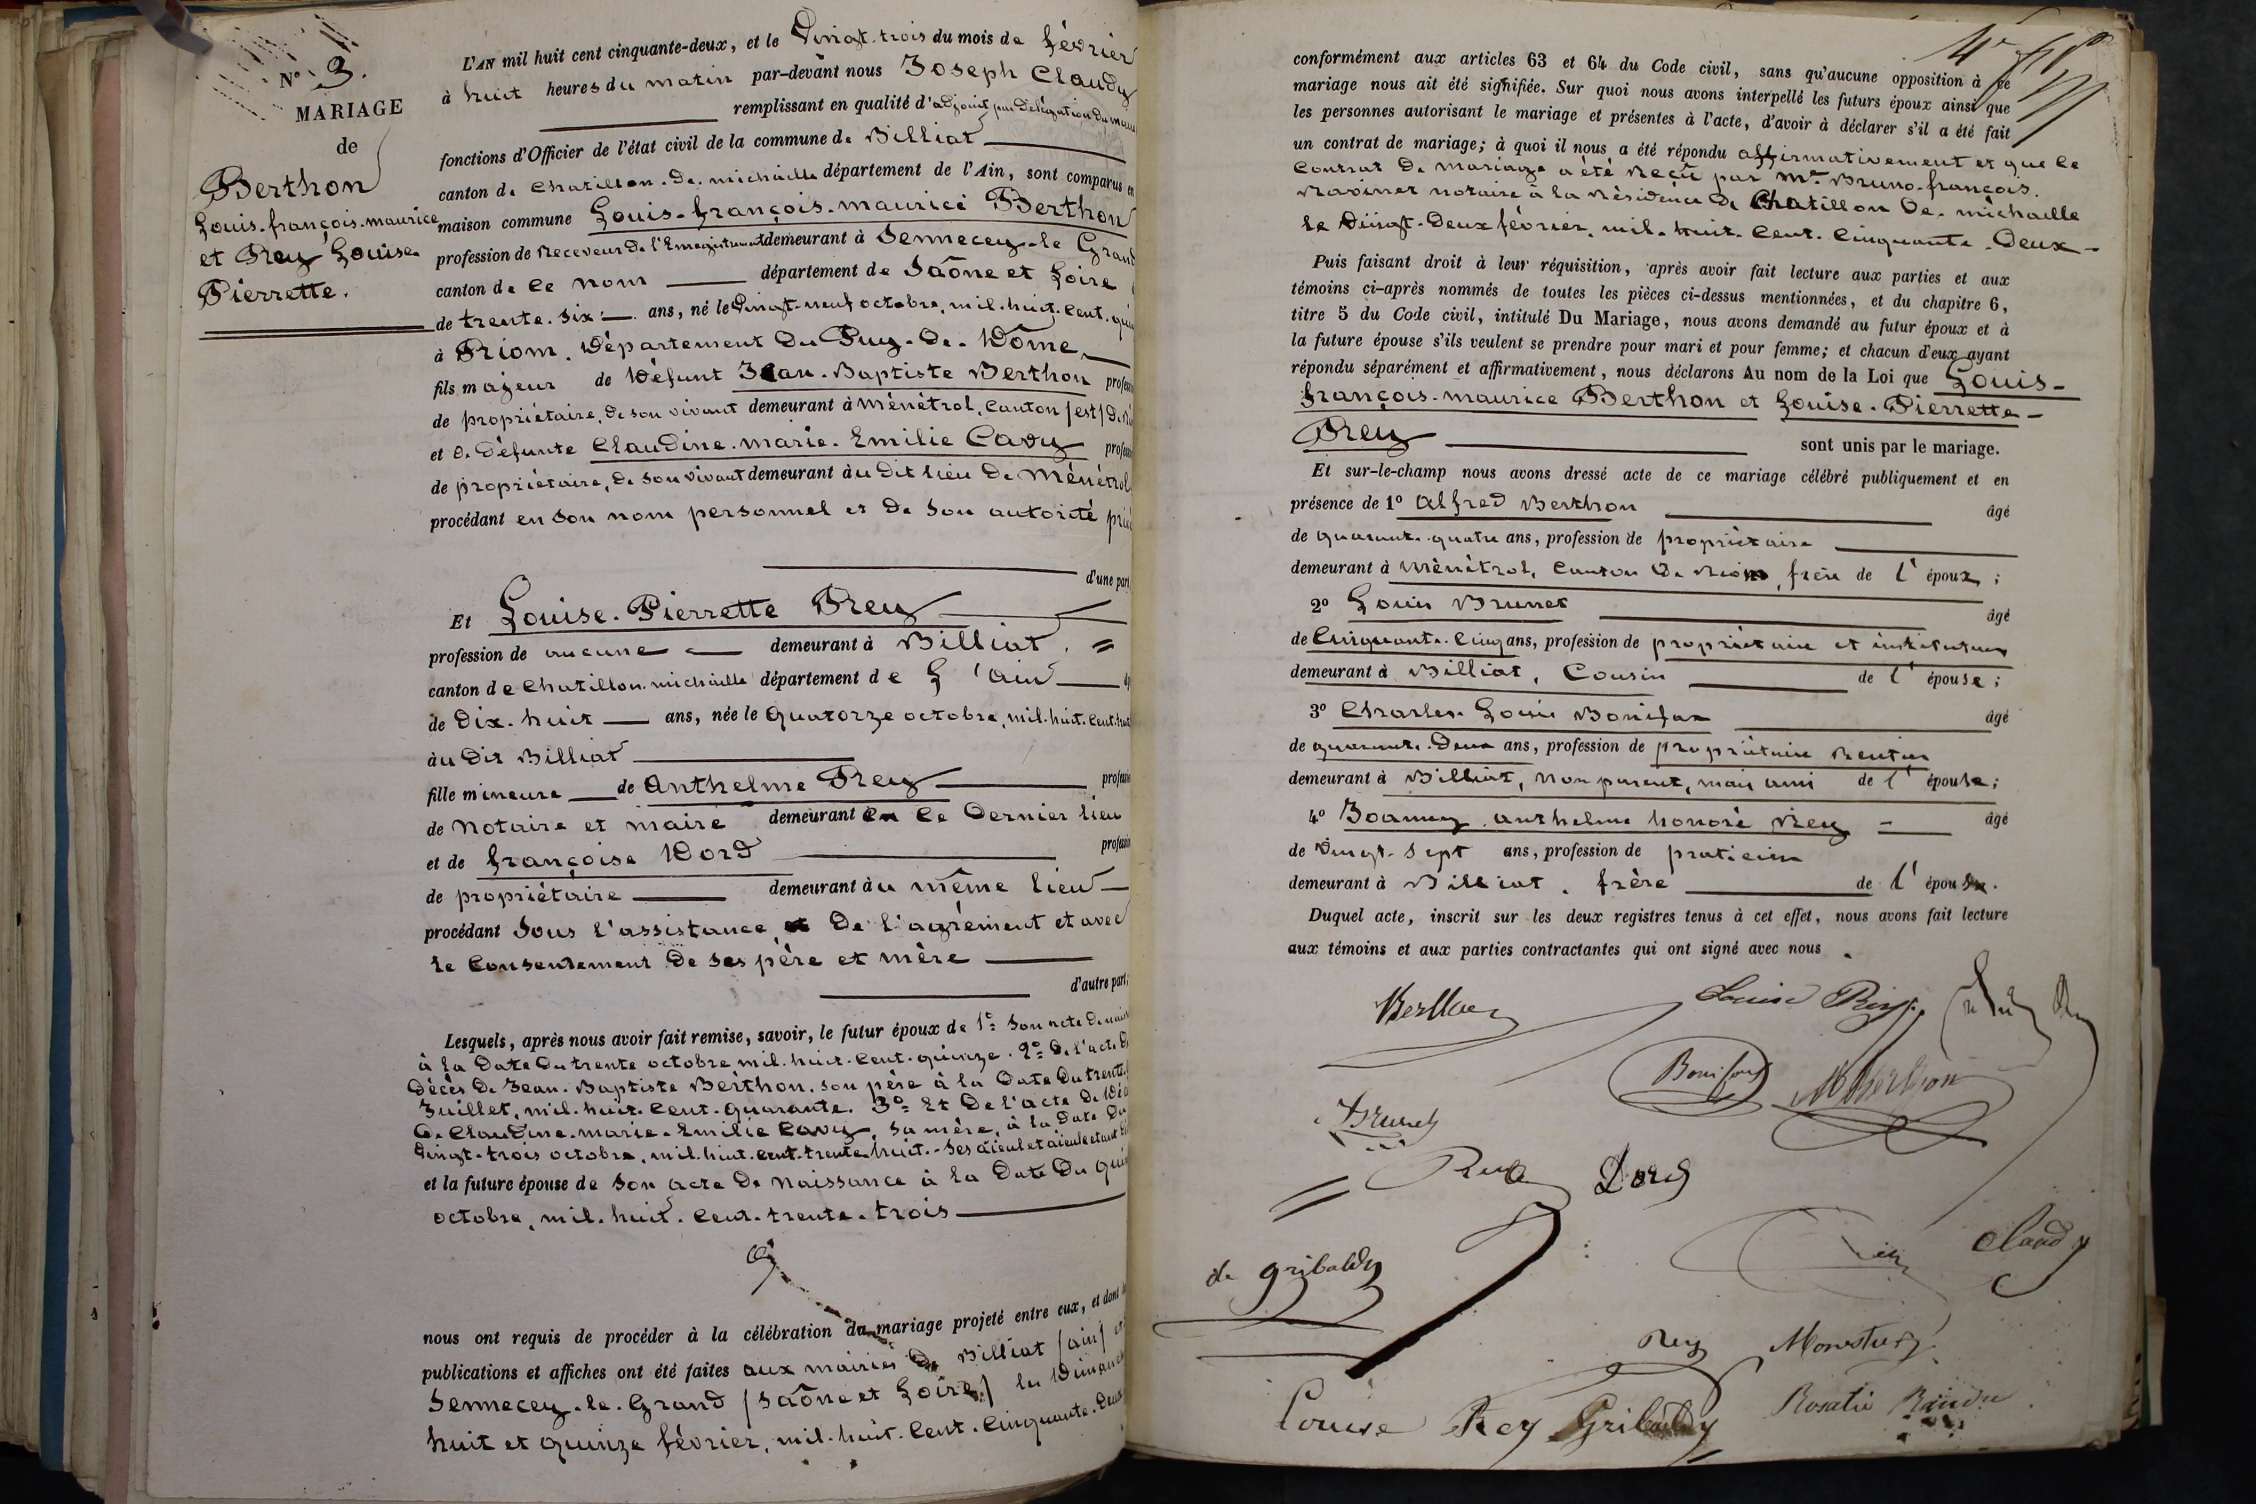 N° 3.
MARIAGE
de
Berthon
Louis-françois-maurice
et Rey Louise-
Pierrette.
L'AN mil huit cent cinquante-deux, et le Vingt-trois du mois de février
à huit heures du matin par-devant nous Joseph Claudy
remplissant en qualité d'adjoint par Délégation du maire
fonctions d'Officier de l'état civil de la commune de Billiat
canton de Chatillon-de-michaille département de l'Ain, sont comparus en
maison commune Louis-françois-maurice Berthon
profession de Receveur de l'Enregistrement demeurant à Sennecey-le Grand
canton de ce nom département de Saône et Loire
de trente-six ans, né le Vingt-neuf octobre, mil-huit-cent-
à Riom, Département Du Puy-De-Dôme,
fils majeur de Défunt Jean-Baptiste Berthon
de propriétaire, de son vivant demeurant à Ménétrol, Canton (est) De
et de Défunte Claudine-marie-Emilie Cavy
de propriétaire, de son vivant demeurant au Dit lieu De Ménétrol
procédant en son nom personnel et de son autorité
d'une part,
Et Louise-Pierrette Rey
profession de aucune demeurant à Billiat.
canton de Chatillon-michaille département de L'ain
de Dix-huit ans, née le Quatorze octobre, mil-huit-cent-
au Dit Billiat
fille mineure de Anthelme Rey
de Notaire et maire demeurant en ce Dernier lieu
et de françoise Dord
de propriétaire demeurant au même lieu
procédant Sous l'assistance, De l'agrément et avec
le Consentement De ses père et mère
d'autre part;
Lesquels, après nous avoir fait remise, savoir, le futur époux de 1° Son acte De
à la Date Du trente octobre mil-huit-cent-quinze. 2° De l'acte De
Décès De Jean-Baptiste Berthon, son père à la Date Du trente
Juillet, mil-huit-cent-quarante. 3° Et De l'acte De
De Claudine-marie-Emilie Cavy, sa mère, à la Date Du
Vingt-trois octobre, mil-huit-cent-trente-huit.- Ses aïeul et aïeule étant
et la future épouse de Son acte De Naissance à la Date Du
octobre, mil-huit-cent-trente-trois
nous ont requis de procéder à la célébration du mariage projeté entre eux, et dont
publications et affiches ont été faites aux mairies De Billiat (ain)
Sennecey-le-Grand (Saône et Loire) les
huit et quinze février, mil-huit-cent-cinquante-Deux
conformément aux articles 63 et 64 du Code civil, sans qu'aucune opposition à ce
mariage nous ait été signifiée. Sur quoi nous avons interpellé les futurs époux ainsi que
les personnes autorisant le mariage et présentes à l'acte, d'avoir à déclarer s'il a été fait
un contrat de mariage; à quoi il nous a été répondu affirmativement et que le
Contrat De Mariage a été Reçu par Me Bruno-françois
Ravinet notaire à la Résidence De Chatillon De-michaille
le Vingt-Deux février, mil-huit-cent-cinquante-Deux-
Puis faisant droit à leur réquisition, après avoir fait lecture aux parties et aux
témoins ci-après nommés de toutes les pièces ci-dessus mentionnées, et du chapitre 6,
titre 5 du Code civil, intitulé Du Mariage, nous avons demandé au futur époux et à
la future épouse s'ils veulent se prendre pour mari et pour femme; et chacun d'eux ayant
répondu séparément et affirmativement, nous déclarons Au nom de la Loi que Louis-
françois-maurice Berthon et Louise-Pierrette-
Rey sont unis par le mariage.
Et sur-le-champ nous avons dressé acte de ce mariage célébré publiquement et en
présence de 1° Alfred Berthon âgé
de quarante-quatre ans, profession de propriétaire
demeurant à Ménétrol, Canton De Riom, frère de l'époux;
2° Louis Brunet âgé
de Cinquante-Cinq ans, profession de propriétaire et instituteur
demeurant à Billiat, Cousin de l'épouse;
3° Charles Louis Bonifax âgé
de quarante-Deux ans, profession de propriétaire Rentier
demeurant à Billiat, Non parent, mais ami de l'épouse;
4° Joanny anthelme honoré Rey âgé
de Vingt-sept ans, profession de praticien
demeurant à Billiat, frère de l'épouse.
Duquel acte, inscrit sur les deux registres tenus à cet effet, nous avons fait lecture
aux témoins et aux parties contractantes qui ont signé avec nous.
Berthon Louise Rey
Bonifax ABerthon
Brunet
Rey Dord
de gribaldy Claudy
Rey
Louise Rey Gribaldy Rosalie